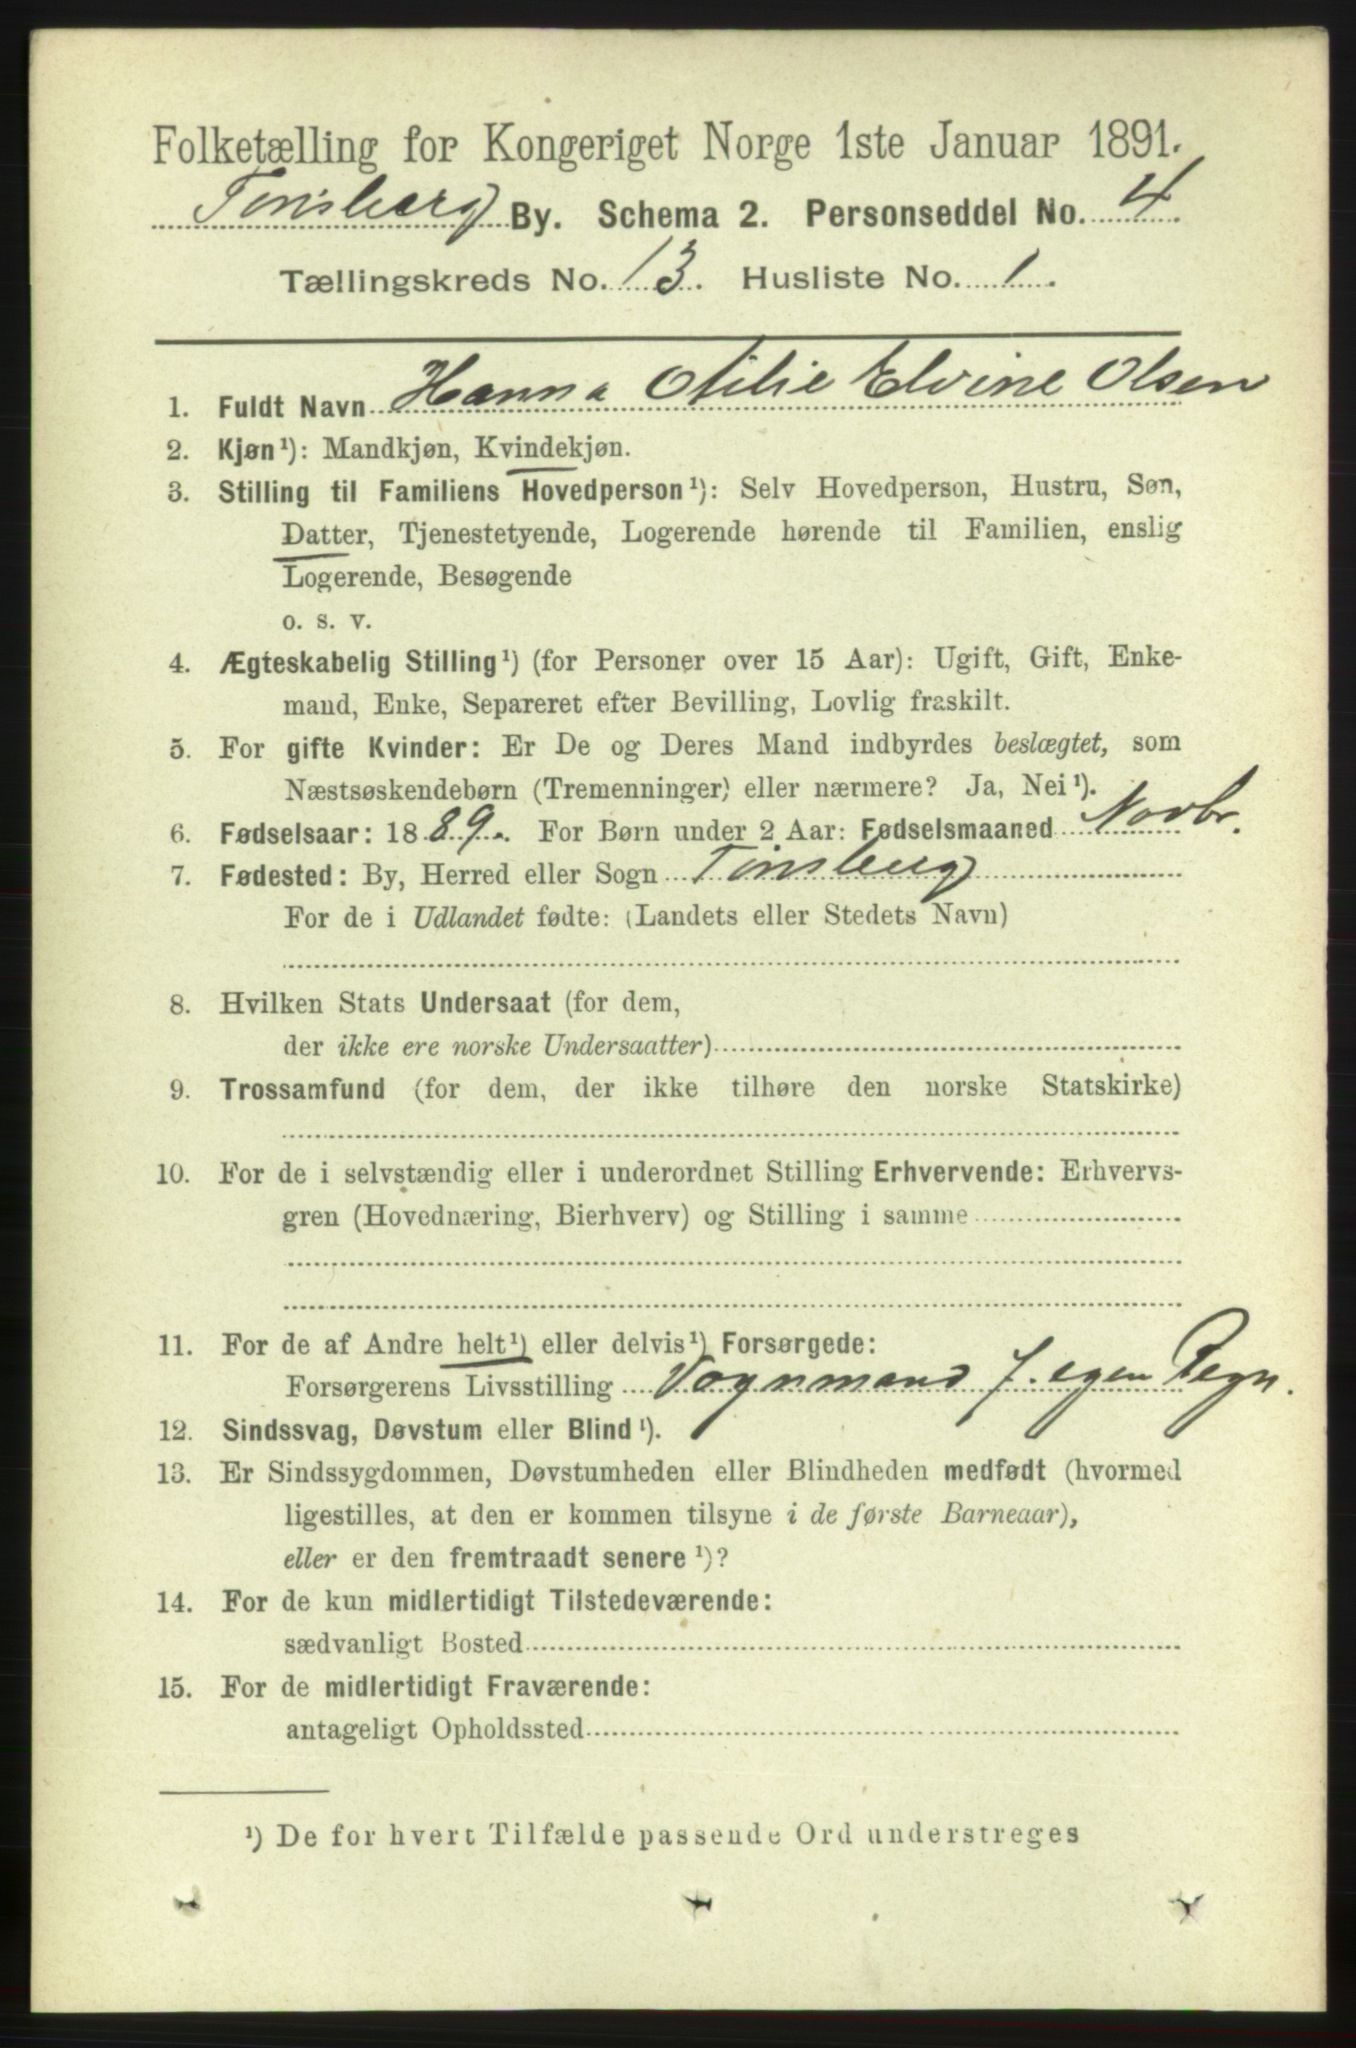 Folketælling for Kongeriget Norge 1ste Januar 1891.
Tønsberg By. Schema 2. Personseddel No. 4.
Tællingskreds No. 13. Husliste No. 1.
1. Fuldt Navn Hanna Otilie Elvine Olsen
2. Kjøn¹): Mandkjøn, Kvindekjøn.
3. Stilling til Familiens Hovedperson¹): Selv Hovedperson, Hustru, Søn,
Datter, Tjenestetyende, Logerende hørende til Familien, enslig
Logerende, Besøgende
o. s. v.
4. Ægteskabelig Stilling¹) (for Personer over 15 Aar): Ugift, Gift, Enke-
mand, Enke, Separeret efter Bevilling, Lovlig fraskilt.
5. For gifte Kvinder: Er De og Deres Mand indbyrdes beslægtet, som
Næstsøskendebørn (Tremenninger) eller nærmere? Ja, Nei¹).
6. Fødselsaar: 1889. For Børn under 2 Aar: Fødselsmaaned Novbr.
7. Fødested: By, Herred eller Sogn Tønsberg
For de i Udlandet fødte: (Landets eller Stedets Navn)
8. Hvilken Stats Undersaat (for dem,
der ikke ere norske Undersaatter)
9. Trossamfund (for dem, der ikke tilhøre den norske Statskirke)
10. For de i selvstændig eller i underordnet Stilling Erhvervende: Erhvervs-
gren (Hovednæring, Bierhverv) og Stilling i samme
11. For de af Andre helt¹) eller delvis¹) Forsørgede:
Forsørgerens Livsstilling Vognmand f. egen Regn.
12. Sindssvag, Døvstum eller Blind¹).
13. Er Sindssygdommen, Døvstumheden eller Blindheden medfødt (hvormed
ligestilles, at den er kommen tilsyne i de første Barneaar),
eller er den fremtraadt senere¹)?
14. For de kun midlertidigt Tilstedeværende:
sædvanligt Bosted
15. For de midlertidigt Fraværende:
antageligt Opholdssted
¹) De for hvert Tilfælde passende Ord understreges